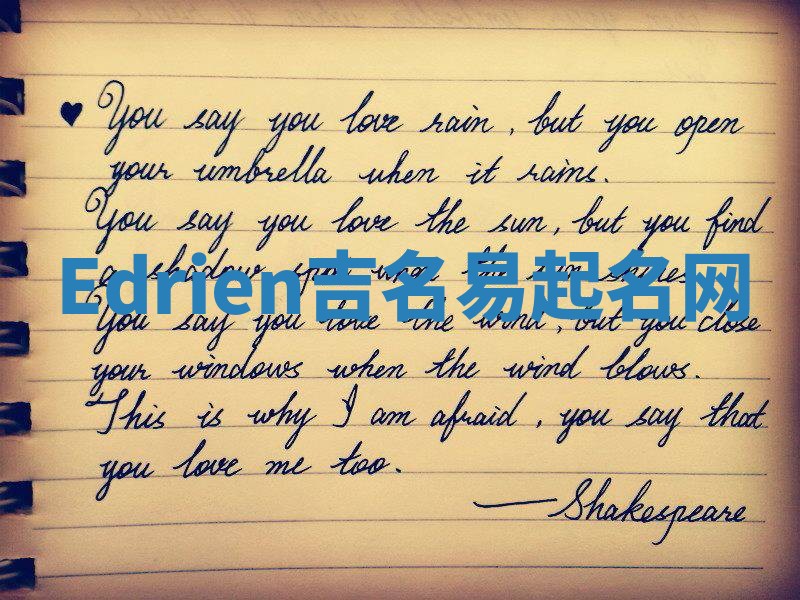 ♥ You say you love rain, but you open
your umbrella when it rains.
You say you love the sun, but you find
a shadow spot when the sun shines.
Edrien吉名易起名网
You say you love the wind, but you close
your windows when the wind blows.
This is why I am afraid, you say that
you love me too.
—Shakespeare